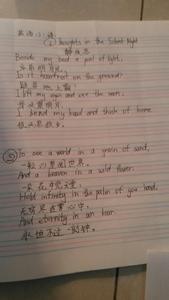 ① Thoughts in the Silent Night
静夜思
Beside my bed a pool of light,
床前明月光,
Is it hoarfrost on the ground?
疑是地上霜?
I lift my eyes and see the moon,
举头望明月,
I bend my head and think of home.
低头思故乡。
② To see a world in a grain of sand,
世界,
And a heaven in a wild flower.
一朵花
Hold infinity in the palm of your hand,
无限
And eternity in an hour.
永恒不过一